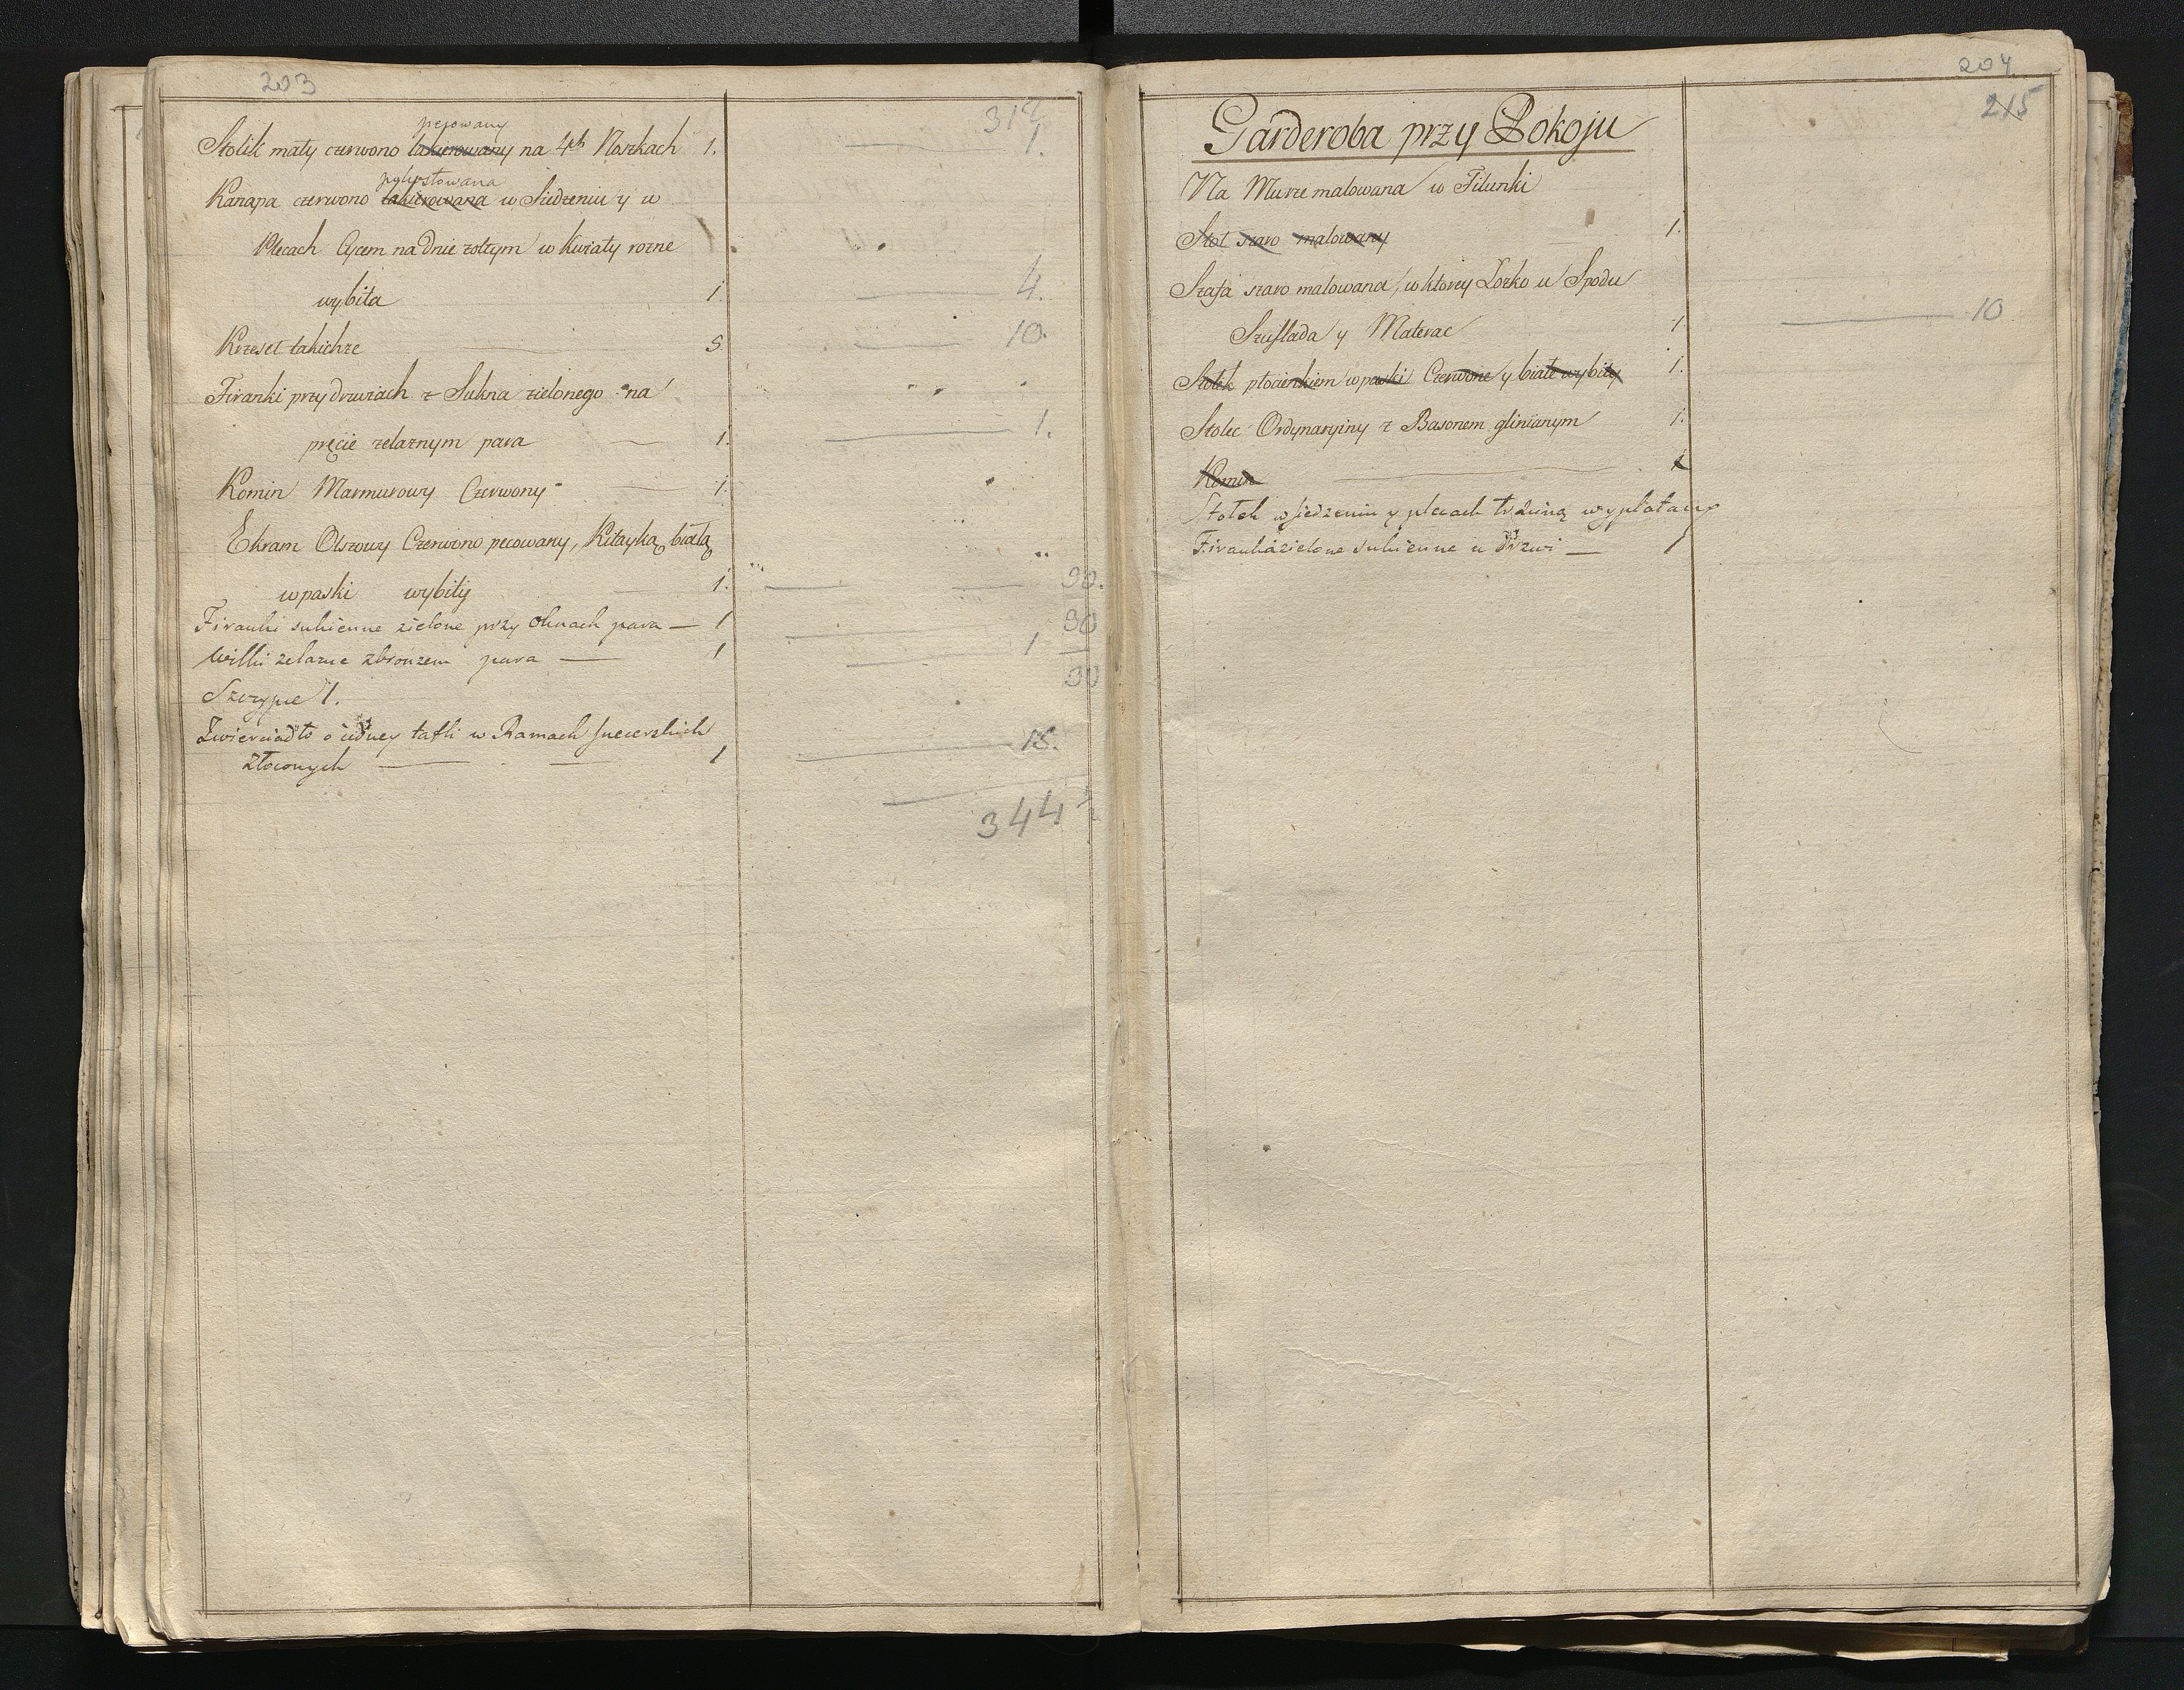 203
pejowany
Stolik mały czerwono lakierowany na 4ch Nozkach 1. 1.
polistowana
Kanapa czerwono lakierowana w Siedzeniu y w
Plecach Cycem na dnie zołtym w Kwiaty rozne
wybita 1. 4.
Krzeseł takichze 5. 10.
Firanki przy drzwiach z Sukna zielonego na
pręcie zelaznym para 1. 1.
Komin Marmurowy Czerwony 1.
Ekram Olszowy Czerwono pecowany, Kitayką białą
w paski wybity 1. 30.
Firanki sukienne zielone przy Oknach para — 1 30
Wilki zelazne zbronzem para — 1 1
30
Szczypce 1.
Zwierciadło o iedney tafli w Ramach snycerskich
złoconych — 1 15.
344 1/2
204
215
Garderoba przy Pokoju
Na Murze malowana w Filunki
Stoł szaro malowany 1.
Szafa szaro malowana, w ktorey Łozko u Spodu
Szuflada y Materac 1 10
Stołek płocienkiem w paski Czerwone y białe wybity 1.
Stolec Ordynaryiny z Basonem glinianym 1.
Komin 1
Stołek w siedzeniu y plecach trzciną wyplatany
Firanka zielone sukienne u drzwi — 1